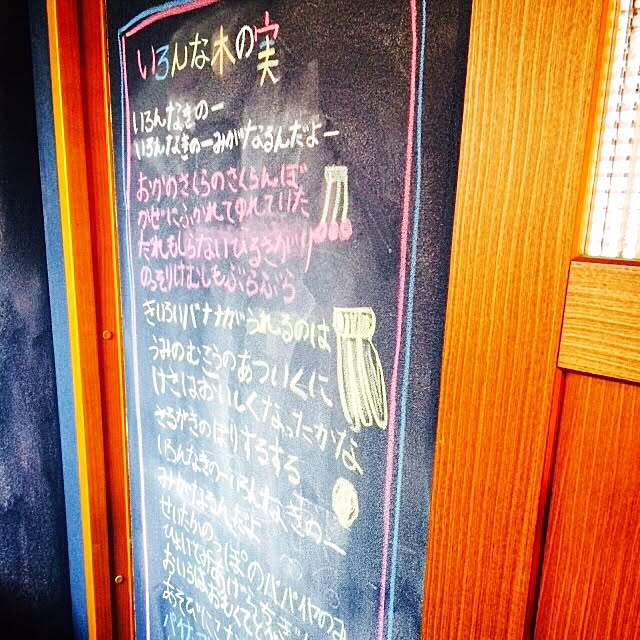 いろんな木の実
いろんなきのー
いろんなきのーみがなるんだよー
おかのさくらのさくらんぼ
かぜにふかれてゆれていた
だれもしらないひるさがり
のっそりけむしもぶらぶら
きいろいバナナがうれるのは
うみのむこうのあついくに
けさはおいしくなったかな
さるがきのぼりするする
いろんなきのーいろんなきのー
みがなるんだよ
せいたかのっぽのパパイヤのみ